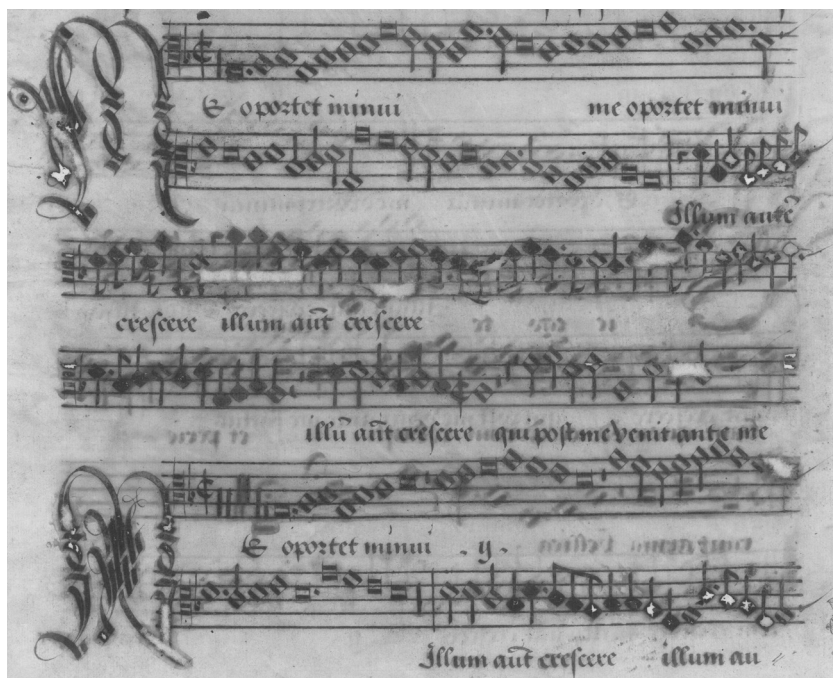 ME oportet minui me oportet minui
Illum autē
crescere illum aūt crescere
illū aūt crescere qui post me venit ante me
ME oportet minui . ij .
Illum aūt crescere illum au